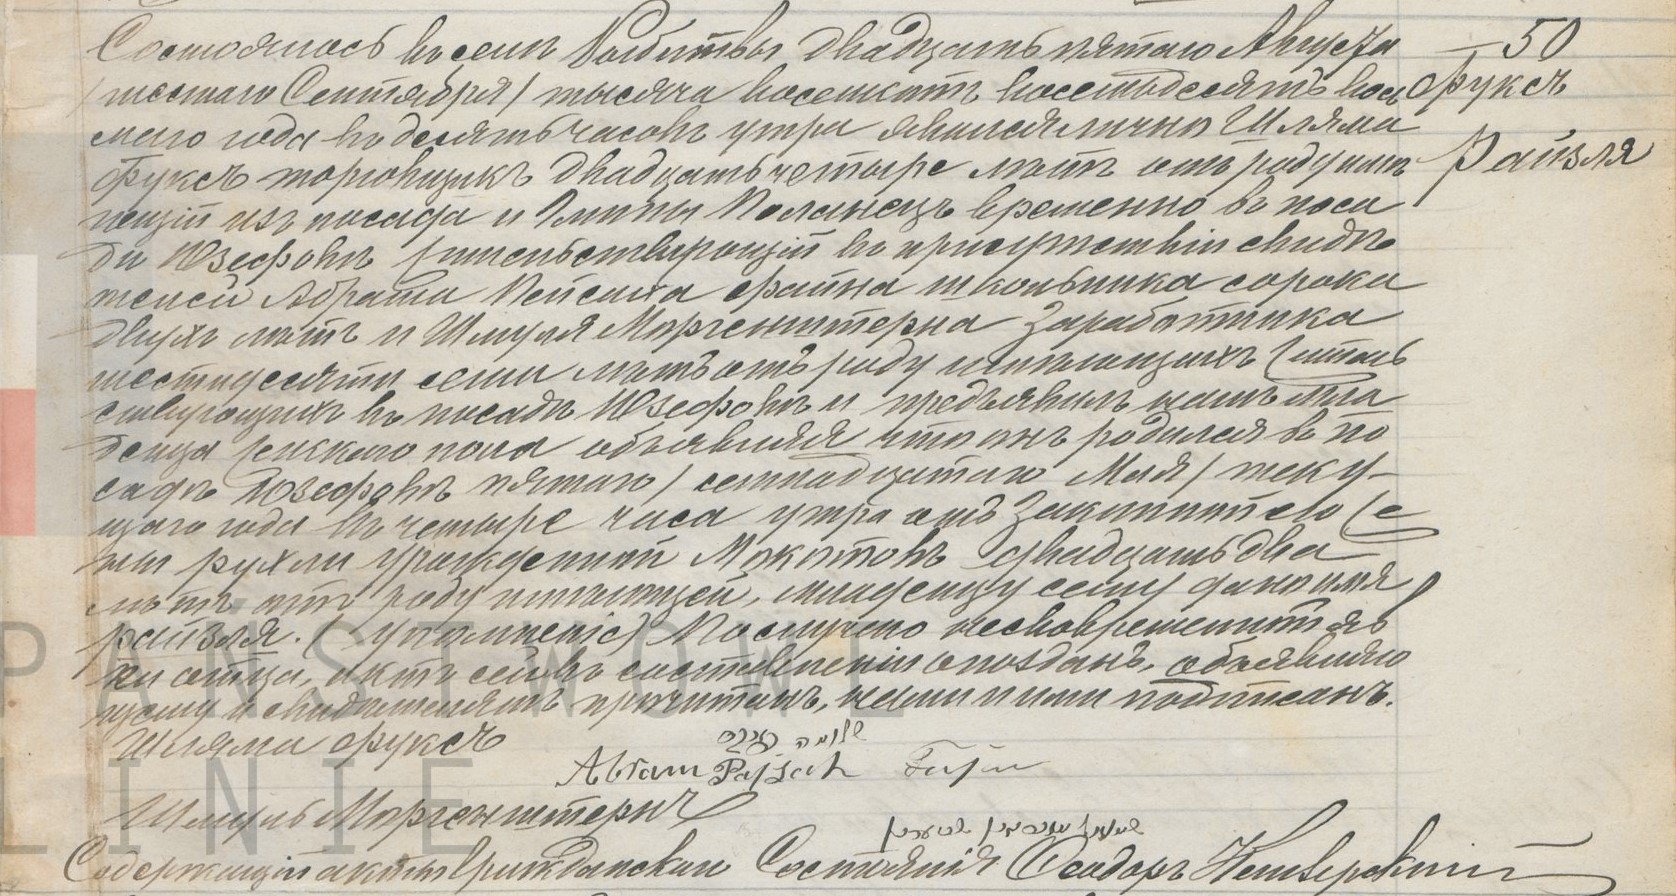 Состоялось въ селѣ Волѣ двадцать пятаго Августа
/шестаго Сентября/ тысяча восемьсотъ восемьдесятъ вось
маго года въ десять часовъ утра явился лично Шляма
Фуксъ торговщикъ двадцать четыре лѣтъ отъ роду имѣ
ющій изъ посада и Гмины Поланецъ временно въ поса
дѣ Юзефовѣ жительствующій въ присутствіи свидѣ
телей Абрама Пейсаха Файна школьника сорока
двухъ лѣтъ и Шмуля Моргенштерна Заработника
шестидесяти семи лѣтъ отъ роду имѣющихъ житель
ствующихъ въ посадѣ Юзефовѣ и предъявилъ намъ мла
денца женскаго пола объявляя что онъ родился въ по
садѣ Юзефовѣ пятаго /семнадцатаго Мая/ теку-
щаго года въ четыре часа утра отъ Законной его же
ны Рухли урожденной Мокотовъ двадцать два
лѣтъ отъ роду имѣющей, младенцу сему дано имя
Райзля.
отца, актъ сей въ составленіи опозданъ, объявляю
щему и свидѣтелямъ прочитанъ, нами и ими подписанъ.
Шляма Фуксъ
שלמה פוקס
Abram Pajsach Fajn
Шмуль Моргенштернъ
שמואל מורגין שטערין
Содержащій акты Гражданскаго Состоянія Ѳеодоръ
50
Фуксъ
Райзля
PAŃSTWOWE
LINIE